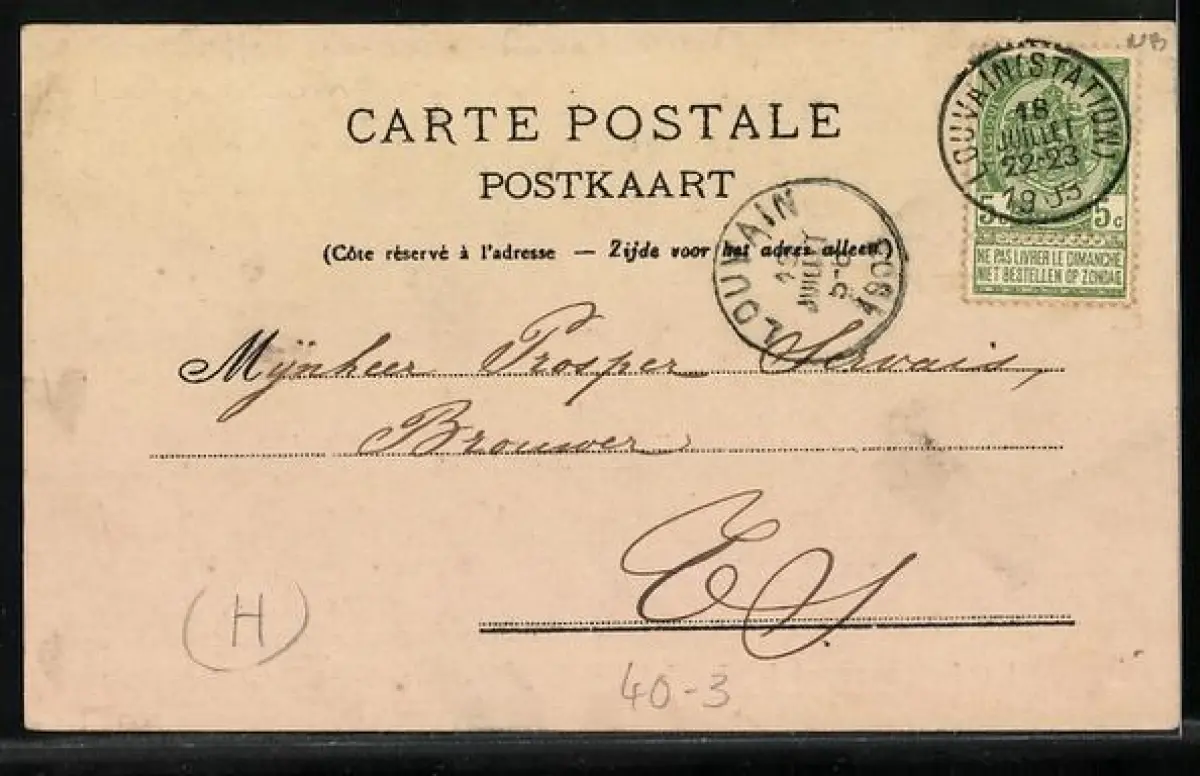 CARTE POSTALE
POSTKAART
(Côte réservé à l'adresse — Zijde voor het adres alleen)
LOUVAIN (STATION)
18
JUILLET
22-23
1905
5c 5c
NE PAS LIVRER LE DIMANCHE
NIET BESTELLEN OP ZONDAG
LOUVAIN
JUILLET
1905
Mijnheer Prosper Servais,
Brouwer
E S
(H)
40-3